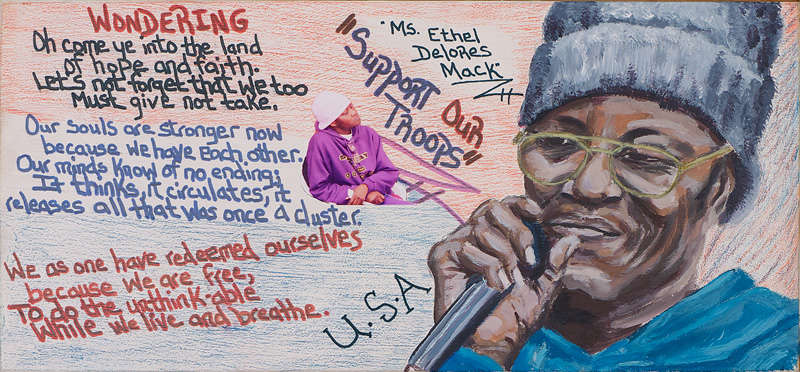 WONDERING
Oh come ye into the land
of hope and faith.
Let's not forget that we too
Must give not take.
Our souls are stronger now
because we have Each other.
Our minds know of no ending;
It thinks, it circulates, it
releases all that was once a cluster.
We as one have redeemed ourselves
because we are free,
To do the unthink-able
While we live and breathe.
"Support Our
Troops"
"Ms. Ethel
Delores
Mack"
U.S.A